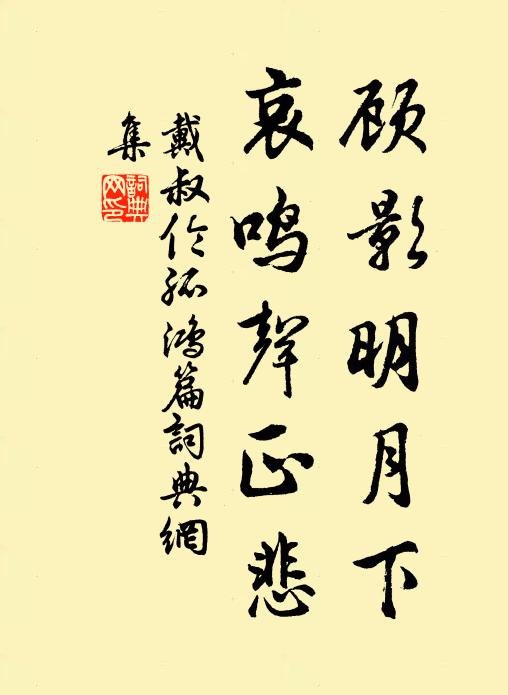 顾影明月下
哀鸣声正悲
戴叔伦孤鸿篇词典網
集
词典
网印